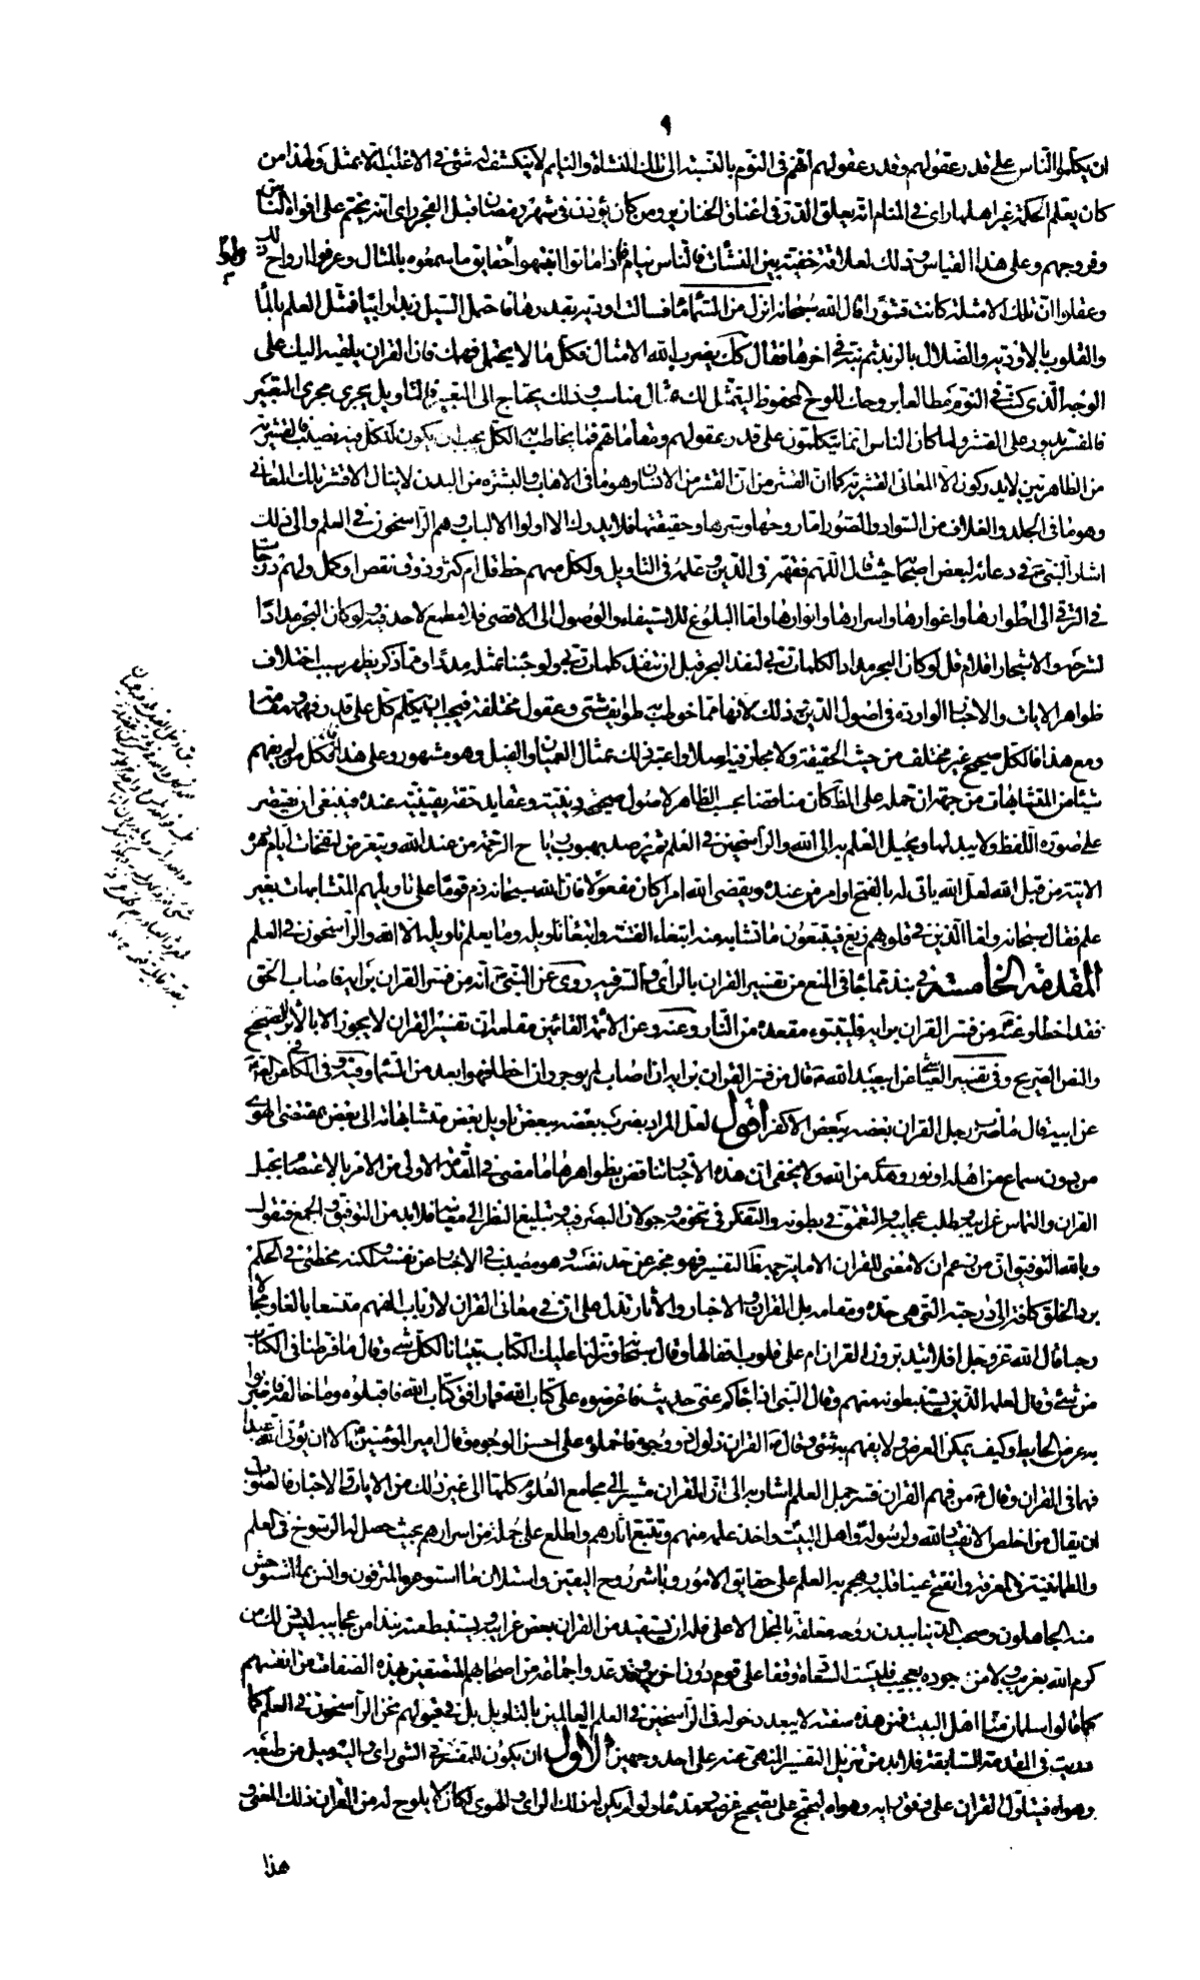 ٩
ان يكلموا الناس على قدر عقولهم وقدر عقولهم انهم فى النوم بالنسبة الى تلك النشاة والنايم لا ينكشف له شئ فى الاغلب الا بمثل ولهذا من
كان يعلم الحكمة غير اهلها راى فى المنام انه يعلق الدر فى اعناق الخنازير ومن كان يؤذن فى شهر رمضان قبل الفجر راى انه يختم على افواه الناس
وفروجهم وعلى هذا القياس وذلك لعلاقة خفية بين النشآت فالناس نيام فاذا ماتوا انتبهوا وعلموا حقايق ما سمعوه بالمثال وعرفوا ارواح ذلك
وعقلوا ان تلك الامثلة كانت قشورا قال الله سبحانه انزل من السماء ماء فسالت اودية بقدرها فاحتمل السيل زبدا رابيا فمثل العلم بالماء
والقلوب بالاودية والضلال بالزبد ثم نبه فى اخرها فقال كذلك يضرب الله الامثال فكل ما لا يحتمل فهمك فان القران يلقيه اليك على
الوجه الذى كنت فى النوم مطالعا بروحك للوح المحفوظ ليتمثل لك بمثال مناسب وذلك يحتاج الى التعبير فالتاويل يجرى مجرى التعبير
فالمفسر يدور على القشر ولما كان الناس انما يتكلمون على قدر عقولهم ومقاماتهم فما يخاطب به الكل يجب ان يكون للكل فيه نصيب فالقشرية
من الظاهريين لا يدركون الا المعانى القشرية كما ان القشر من الانسان وهو ما فى الاهاب والبشرة من البدن لا ينال الا قشر تلك المعانى
وهو ما فى الجلد والغلاف من السواد والصور اما روحها وسرها وحقيقتها فلا يدركه الا اولوا الالباب وهم الراسخون فى العلم والى ذلك
اشار النبى ص فى دعائه لبعض اصحابه حيث قال اللهم فقهه فى الدين وعلمه التاويل ولكل منهم حظ قل ام كثر وذوق نقص او كمل ولهم درجات
فى الترقى الى اطوارها واغوارها واسرارها وانوارها واما البلوغ للاستيفاء والوصول الى الاقصى فلا مطمع لاحد فيه ولو كان البحر مدادا
لشرحه والاشجار اقلاما قل لو كان البحر مدادا لكلمات ربى لنفد البحر قبل ان تنفد كلمات ربى ولو جئنا بمثله مددا ومما ذكر يظهر سبب اختلاف
ظواهر الايات والاخبار الواردة فى اصول الدين وذلك لانها مما خوطب به طوايف شتى وعقول مختلفة فيجب ان يكلم كل على قدر فهمه ومقامه
ومع هذا فالكل صحيح غير مختلف من حيث الحقيقة ولا مجاز فيه اصلا واعتبر ذلك بمثال العميان والفيل وهو مشهور وعلى هذا فكل من لم يفهم
شيئا من المتشابهات من جهة ان حمله على الظاهر كان مناقضا بحسب الظاهر لاصول صحيحة دينية وعقايد حقة يقينية عنده فينبغى ان يقتصر
على صورة اللفظ ولا يبدلها ويحيل العلم به الى الله والراسخين فى العلم ثم يرصد لهبوب رياح الرحمة من عند الله ويتعرض لنفحات ايام دهره
الاتية من قبل الله لعل الله ياتى له بالفتح او امر من عنده ويقضى الله امرا كان مفعولا فان الله سبحانه ذم قوما على تاويلهم المتشابهات بغير
علم فقال سبحانه واما الذين فى قلوبهم زيغ فيتبعون ما تشابه منه ابتغاء الفتنة وابتغاء تاويله وما يعلم تاويله الا الله والراسخون فى العلم
المقدمة الخامسة فى نبذ مما جاء فى المنع من تفسير القران بالراى والسر فيه روى عن النبى ص انه من فسر القران برايه فاصاب الحق
فقد اخطا وعنه ص من فسر القران برايه فليتبوء مقعده من النار وعنه وعن الائمة القائمين مقامه ان تفسير القران لا يجوز الا بالاثر الصحيح
والنص الصريح وفى تفسير العياشى عن ابى عبد الله ع قال من فسر القران برايه ان اصاب لم يوجر وان اخطا فهو ابعد من السماء وفيه وفى الكافى عن الصادق
عن ابيه قال ما ضرب رجل القران بعضه ببعض الا كفر اقول لعل المراد بضرب بعضه ببعض تاويل بعض متشابهاته الى بعض بمقتضى الهوى
من دون سماع من اهله او نور وهدى من الله ولا يخفى ان هذه الاخبار تناقض بظواهرها ما مضى فى المقدمة الاولى من الامر بالاعتصام بحبل
القران والتماس غرايبه وطلب عجايبه والتعمق فى بطونه والتفكر فى تخومه وجولان البصر فيه وتبليغ النظر الى معانيه فلابد من التوفيق والجمع فنقول
وبالله التوفيق ان من زعم ان لا معنى للقران الا ما يترجمه ظاهر التفسير فهو مخبر عن حد نفسه وهو مصيب فى الاخبار عن نفسه ولكنه مخطئ فى الحكم
برد الخلق كافة الى درجته التى هى حده ومقامه بل القران والاخبار والاثار تدل على ان فى معانى القران لارباب الفهم متسعا بالغا ومجالا
رحبا قال الله عز وجل افلا يتدبرون القران ام على قلوب اقفالها وقال سبحانه ونزلنا عليك الكتاب تبيانا لكل شئ وقال ما فرطنا فى الكتاب
من شئ وقال لعلمه الذين يستنبطونه منهم وقال النبى ص اذا جاءكم عنى حديث فاعرضوه على كتاب الله فما وافق كتاب الله فاقبلوه وما خالفه فاضربوا
به عرض الحايط وكيف يمكن العرض ولا يفهم به شئ وقال ص القران ذلول ذو وجوه فاحملوه على احسن الوجوه وقال امير المؤمنين ع الا ان يؤتى الله عبدا
فهما فى القران وقال ع من فهم القران فسر جمل العلم اشار به الى ان القران مشير الى مجامع العلوم كلها الى غير ذلك من الايات والاخبار فالصواب
ان يقال من اخلص الانقياد لله ولرسوله واهل البيت واخذ علمه منهم وتتبع اثارهم واطلع على جملة من اسرارهم بحيث حصل له الرسوخ فى العلم
والطمانينة فى المعرفة وانفتح عينا قلبه وهجم به العلم على حقايق الامور وباشر روح اليقين واستلان ما استوعره المترفون وانس بما استوحش
منه الجاهلون وصحب الدنيا ببدن روحه معلقة بالمحل الاعلى فله ان يستفيد من القران بعض غرايبه ويستنبط منه نبذا من عجايبه ليس ذلك من
كرم الله بغريب ولا من جوده بعجيب فليست السعادة وقفا على قوم دون اخرين وقد عدوا جماعة من اصحابهم المتصفين بهذه الصفات من انفسهم
كما قالوا سلمان منا اهل البيت فمن هذه صفته لا يبعد دخوله فى الراسخين فى العلم العالمين بالتاويل بل فى قولهم نحن الراسخون فى العلم كما
دريت فى المقدمة السابقة فلابد من تنزيل التفسير المنهى عنه على احد وجهين الاول ان يكون للمفسر فى الشئ راى واليه ميل من طبعه
وهواه فيتاول القران على وفق رايه وهواه ليحتج على تصحيح غرضه ومدعاه ولو لم يكن له ذلك الراى والهوى لكان لا يلوح له من القران ذلك المعنى و
هذا